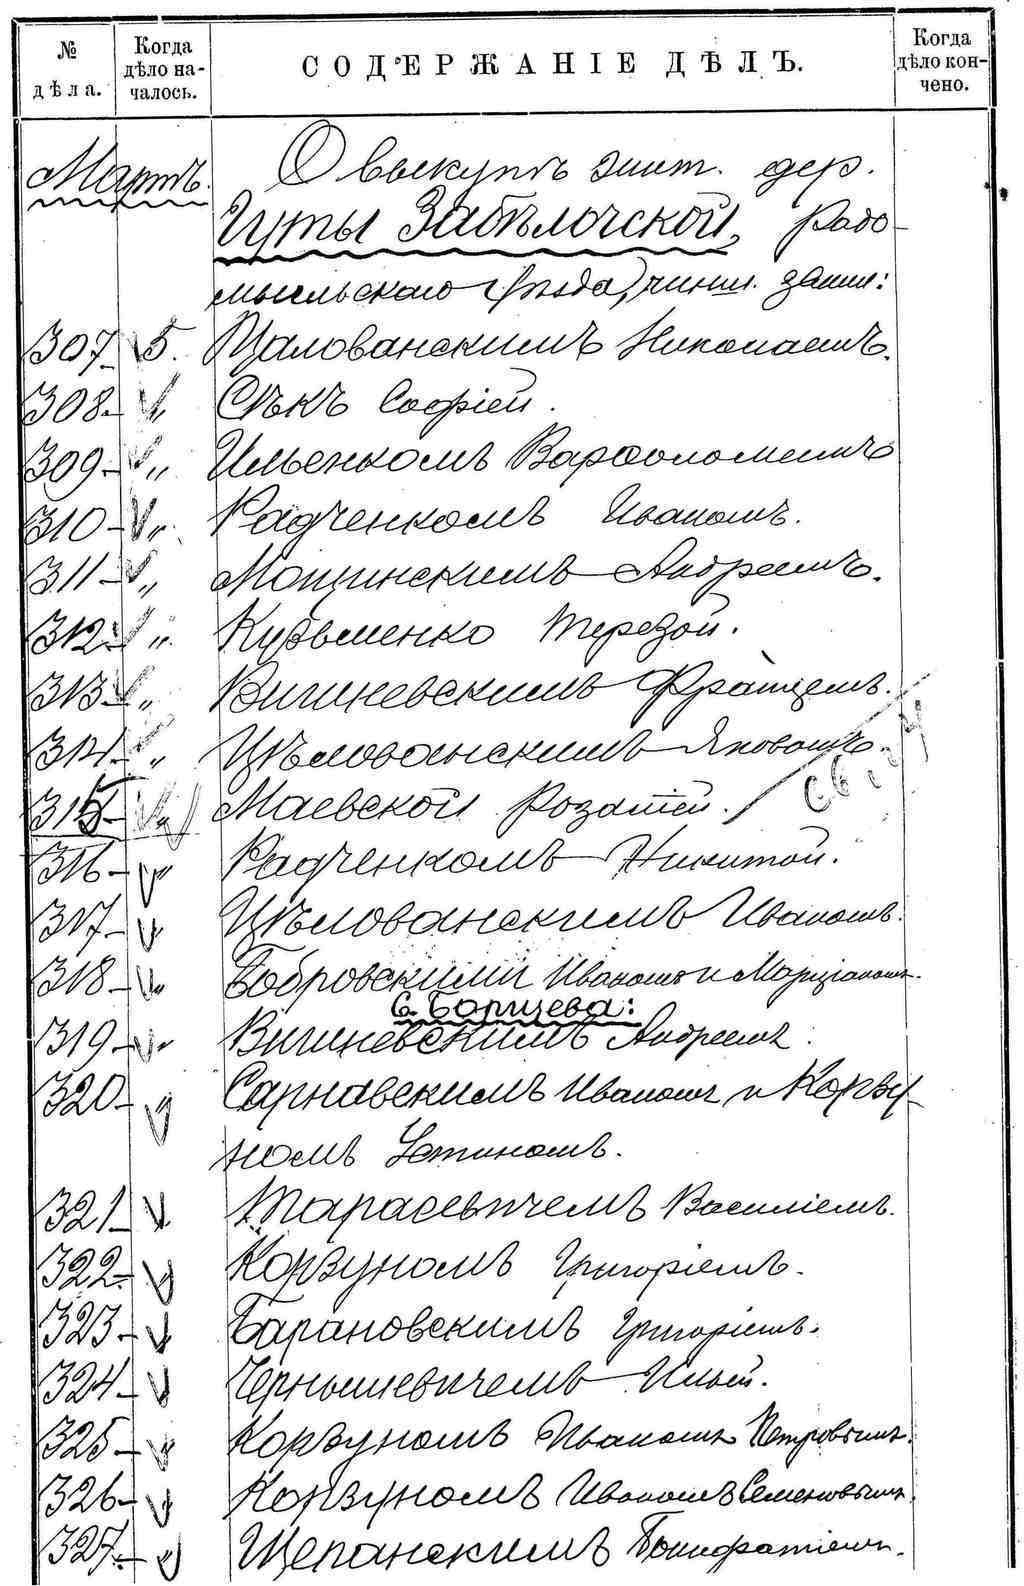 № дѣла.
Когда дѣло началось.
СОДЕРЖАНІЕ ДѢЛЪ.
Когда дѣло кончено.
Мартъ. О выкупѣ чинш. дер.
Гуты Забѣлочской, Радо-
мысльскаго уѣзда, чинш. земли:
307 5. Цаловanскимъ Николаемъ.
308 " Сѣкъ Софіей.
309 " Ильенкомъ Варѳоломеемъ
310 " Радченкомъ Иваномъ.
311 " Мощинскимъ Андреемъ.
312 " Кузьменко Терезой.
313 " Вишневскимъ Францемъ.
314 " Цѣлованскимъ Яковомъ.
315 " Маевской Розаліей.
316 " Радченкомъ Никитой.
317 " Цѣлованскимъ Иваномъ.
318 " Бобровскими Иваномъ и Марціаномъ.
С. Борщева:
319 " Вишневскимъ Андреемъ.
320 " Сарнавскимъ Иваномъ и Корзу-
номъ Устиномъ.
321 " Тарасевичемъ Василіемъ.
322 " Корзуномъ Григоріемъ.
323 " Барановскимъ Григоріемъ.
324 " Чернышевичемъ Ильей.
325 " Корзуномъ Иваномъ Петровымъ.
326 " Корзуномъ Иваномъ Семеновымъ.
327 " Щепанскимъ Бонифатіемъ.